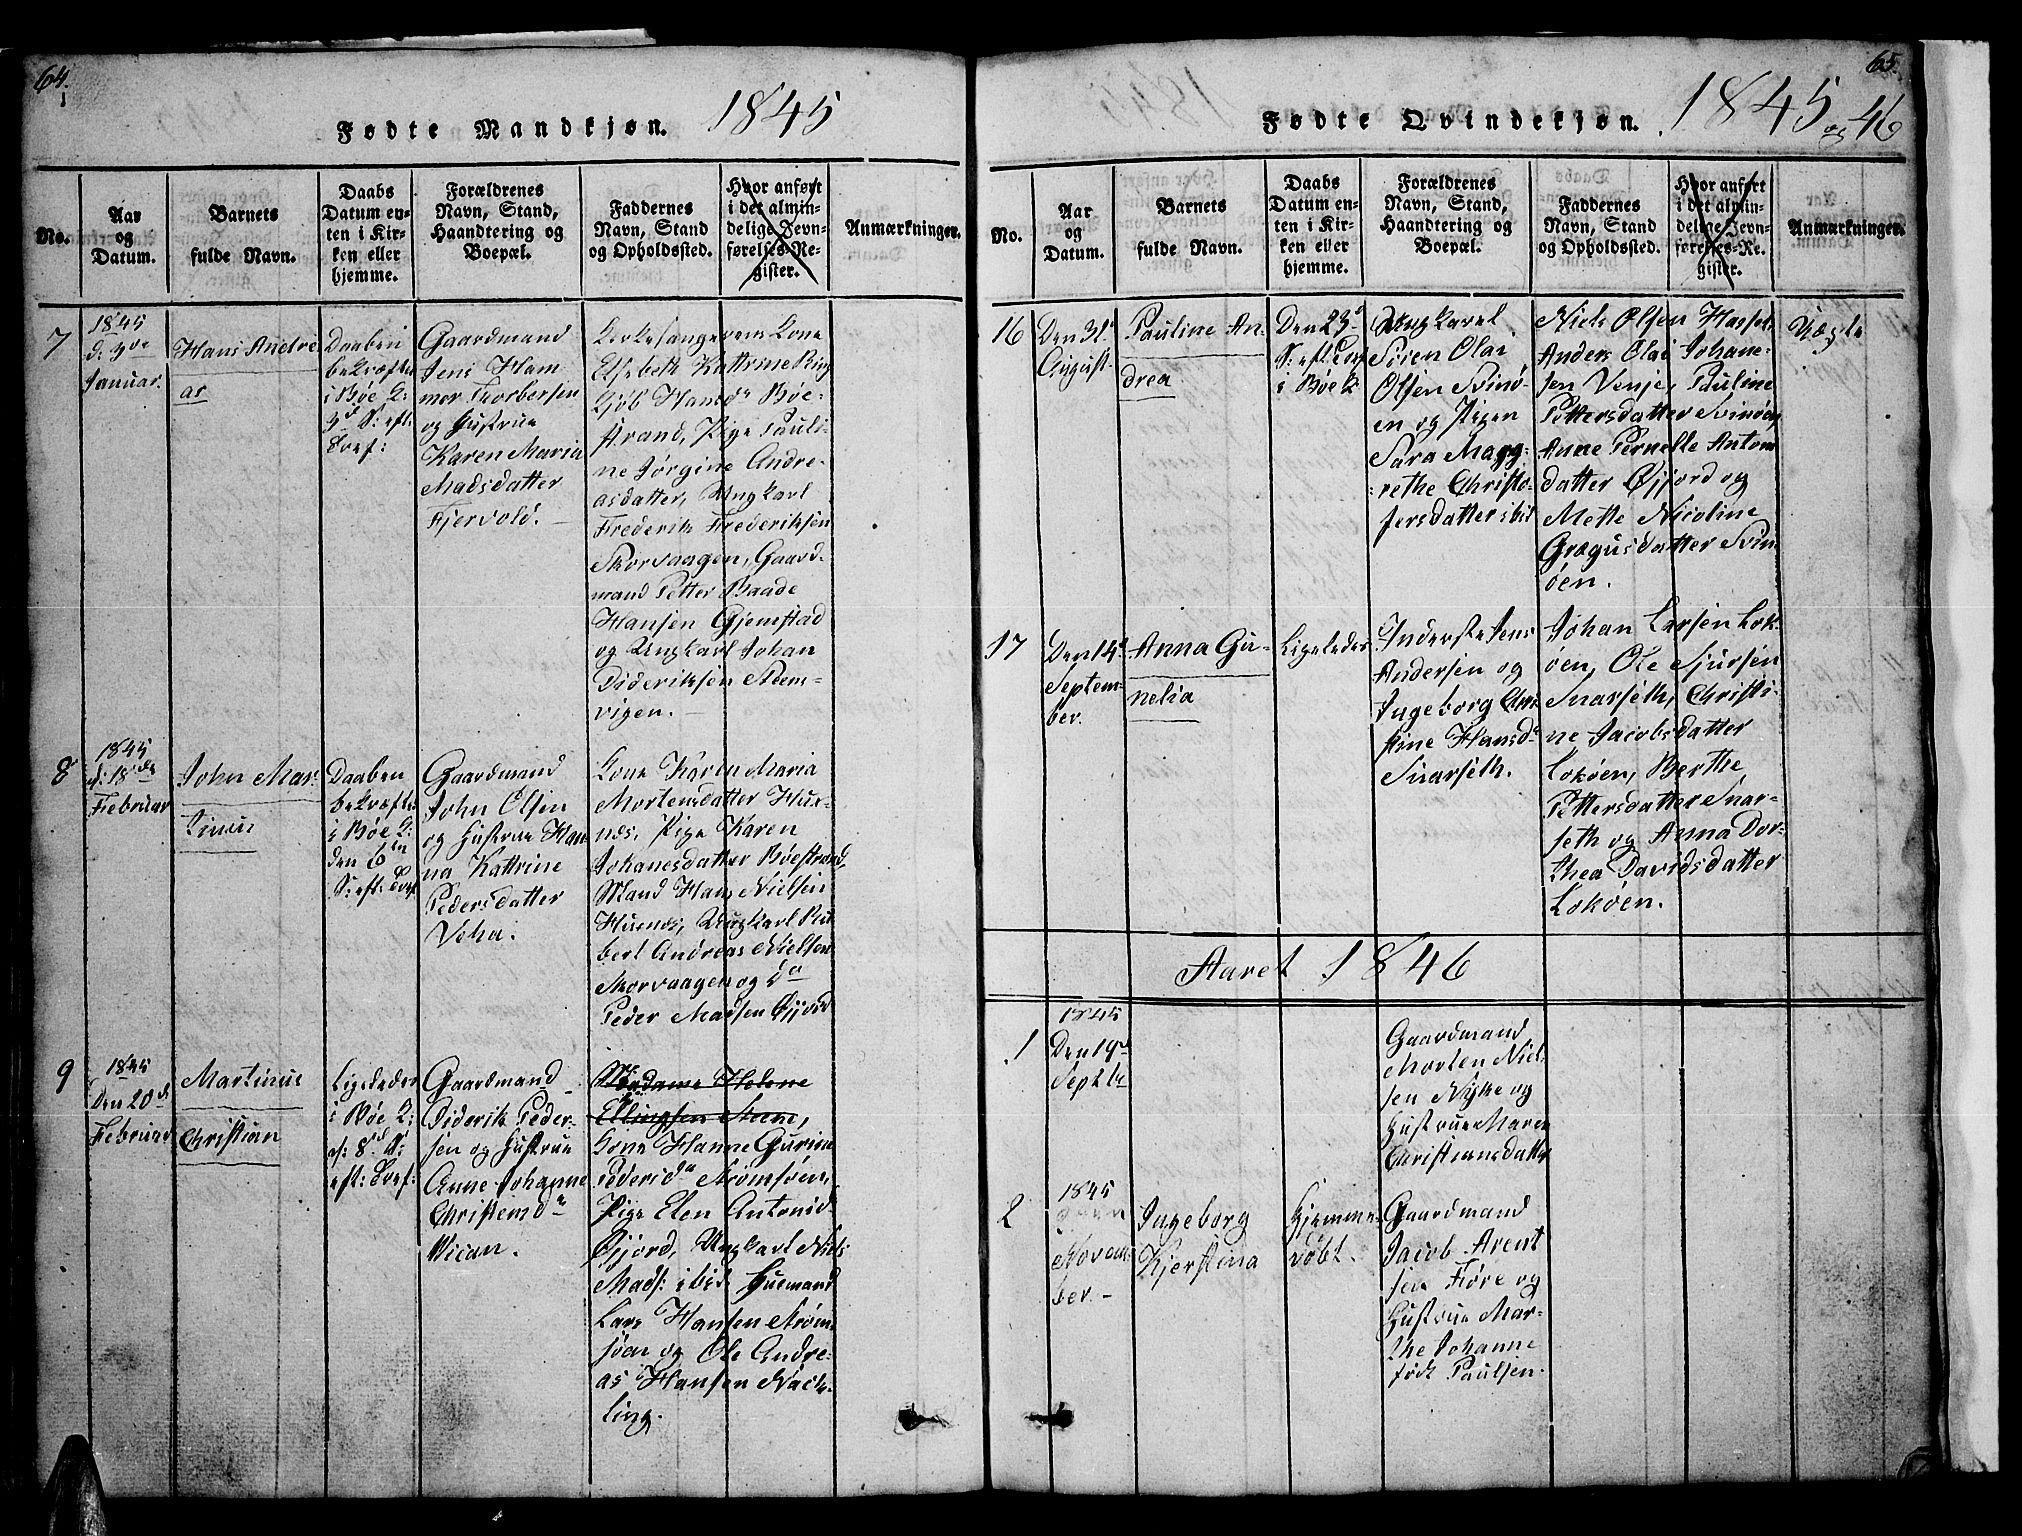 64.
Fødte Mandkjøn. 1845
No.
Aar
og
Datum.
Barnets
fulde Navn.
Daabs
Datum en-
ten i Kir-
ken eller
hjemme.
Forældrenes
Navn, Stand,
Haandtering og
Boepæl.
Faddernes
Navn, Stand
og Opholdssted.
Hvor anført
i det almin-
delige Jevn-
førelses-Re-
gister.
Anmærkninger.
7
1845
d: 3de
Januar.
Hans Andre
as
Daaben
bekræftet
i Bøe K:
3d S: eft:
Gaardmand
Jens Ham
mer Torbersen
og Hustrue
Karen Maria
Madsdatter
Fjervold.
Kirkesangerens Kone
Elsebeth Kathrine Ring
Hansdr Bøe-
strand, Pige Pauli-
ne Jørgine Andre-
asdatter, Ungkarl
Frederik Frederiksen
Skorvaagen, Gaard-
mand Petter Baade
Hansen Gjemstad
og Ungkarl Johan
Dideriksen
vigen.
8
1845
d: 15de
Februar
John Mar-
tinus
Daaben
bekræftet
i Bøe K:
den 6te
S: eft:
Gaardmand
John Olsen
og Hustrue Han
na Kattrine
Pedersdatter
Veha.
Kone Karen Maria
Mortensdatter Hus-
næs, Pige Karen
Johanesdatter Bøestrand,
Mand Hans Nielsen
Husnæs, Ungkarl
bert Andreas Nielsen
Skorvaagen og do
Peder Madsen Øjjord
9
1845
Den 20de
Februar
Martinus
Christian
Ligeledes
i Bøe K:
8d S:
eft:
Gaardmand
Diderik Peder-
sen og Hustrue
Anne Johanne
Christensdr
Vican.
Madame Helene
Ellingsen Steen,
Kone Hanne Gurine
Pedersdr Strømsøen,
Pige Elen Antonid-
Øjjord, Ungkarl Niels
Mads: ibid Huusmand
Lars Hansen Strøm
søen og Ole Andre-
as Hansen
ling.
65.
Fødte Qvindekjøn. 1845 og 46
No.
Aar
og
Datum.
Barnets
fulde Navn.
Daabs
Datum en-
ten i Kir-
ken eller
hjemme.
Forældrenes
Navn, Stand,
Haandtering og
Boepæl.
Faddernes
Navn, Stand
og Opholdssted.
Hvor anført
i det almin-
delige Jevn-
førelses-Re-
gister.
Anmærkninger.
16
Den 31.
August
Pauline An-
drea
Den 23d
S: eft
i Bøe K
Ungkarel
Søren Olai
Olsen Svinø-
en og Pigen
Sara Mag-
rethe Christo-
fersdatter ibid
Niels Olsen Hassel
Anders Olai Johane-
sen Venje, Pauline
Pettersdatter Svinøen
Anne Pernelle Anton
datter Øjjord og
Mette Nicoline
Grægusdatter Svin
øen.
Uægte
17
Den 14d
Septem-
ber.
Anna Gu-
nelia
Ligeledes
Inderste Jens
Andersen og
Ingeborg Chri
stine Hansdr
Snarseth.
Johan Larsen Lok-
øen, Ole Sjursen
Snarseth, Christi-
ne Jacobsdatter
Lokøen, Berthe
Pettersdatter Snar-
seth og Anna Dor-
thea Davidsdatter
Lokøen.
Aaret 1846
1
1845
Den 19d
Septb
Gaardmand
Morten Niel-
sen Nyke og
Hustrue Maren
Christiansdatter
2
1845
Novem
ber.
Ingeborg
Kjerstina
Hjemme-
døbt.
Gaardmand
Jacob Arent
sen Føre og
Hustrue Mar-
the Johanne
født Paulsen.